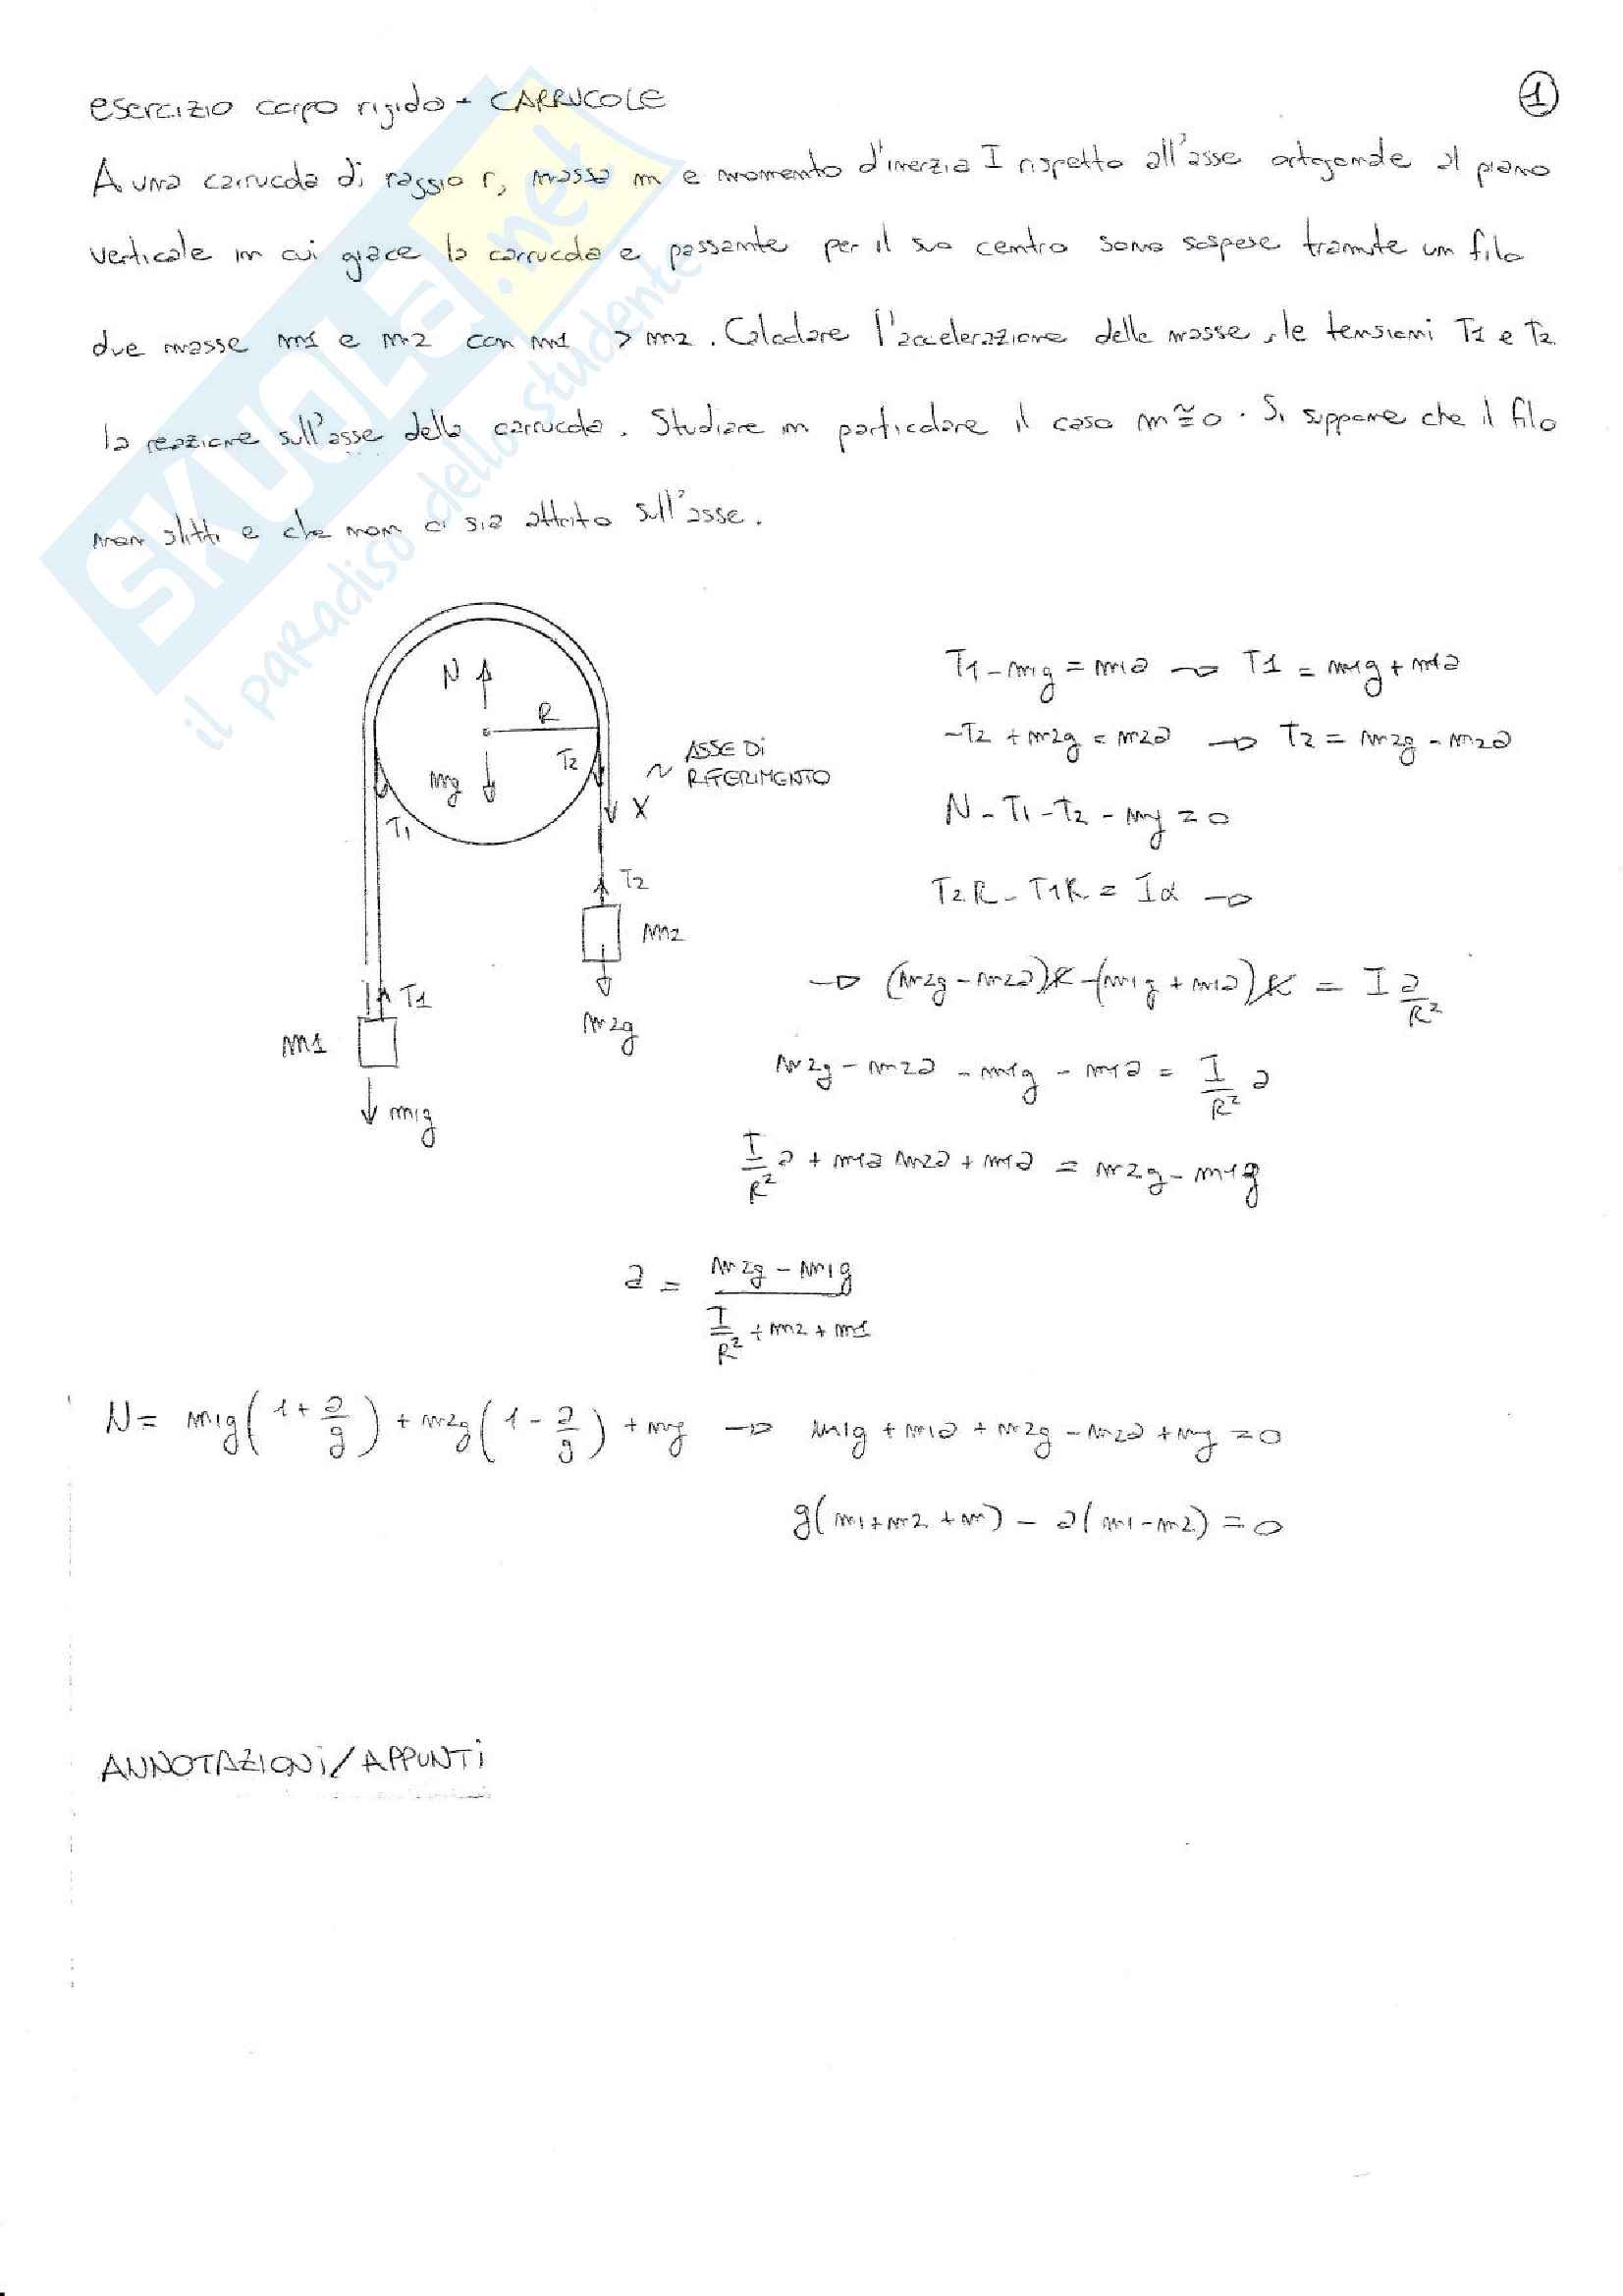 esercizio corpo rigido - CARRUCOLE
1
A una carrucola di raggio r, massa m e momento d'inerzia I rispetto all'asse ortogonale al piano
verticale in cui giace la carrucola e passante per il suo centro sono sospese tramite un filo
due masse m1 e m2 con m1 > m2. Calcolare l'accelerazione delle masse, le tensioni T1 e T2
la reazione sull'asse della carrucola. Studiare in particolare il caso m≅0. Si suppone che il filo
non slitti e che non ci sia attrito sull'asse.
SKUOLA.net
il paradiso dello studente
N
R
mg
T1
T2
X
ASSE DI
RIFERIMENTO
T2
m2
m2g
T1
m1
m1g
T1 - m1g = m1a → T1 = m1g + m1a
-T2 + m2g = m2a → T2 = m2g - m2a
N - T1 - T2 - mg = 0
T2R - T1R = Iα →
→ (m2g - m2a)R - (m1g + m1a)R = I a/R²
m2g - m2a - m1g - m1a = I/R² a
I/R² a + m1a m2a + m1a = m2g - m1g
a = (m2g - m1g)/(I/R² + m2 + m1)
N = m1g(1 + a/g) + m2g(1 - a/g) + mg → m1g + m1a + m2g - m2a + mg = 0
g(m1 + m2 + m) - a(m1 - m2) = 0
ANNOTAZIONI/APPUNTI